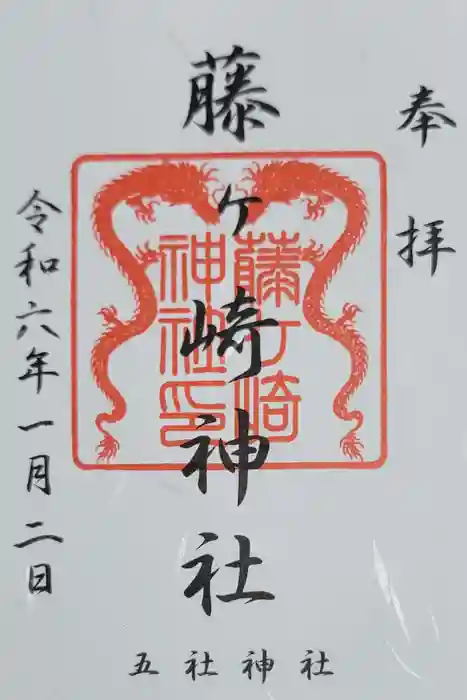 奉拝
藤ヶ崎神社
藤ケ崎
神社印
令和六年一月二日
五社神社